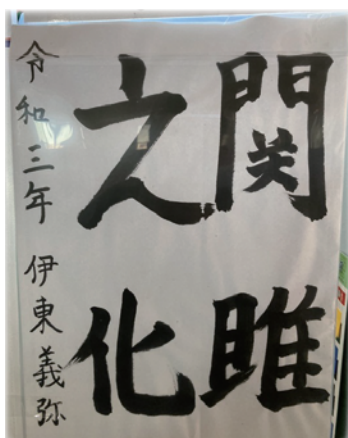 関雎
之化
令和三年 伊東義弥